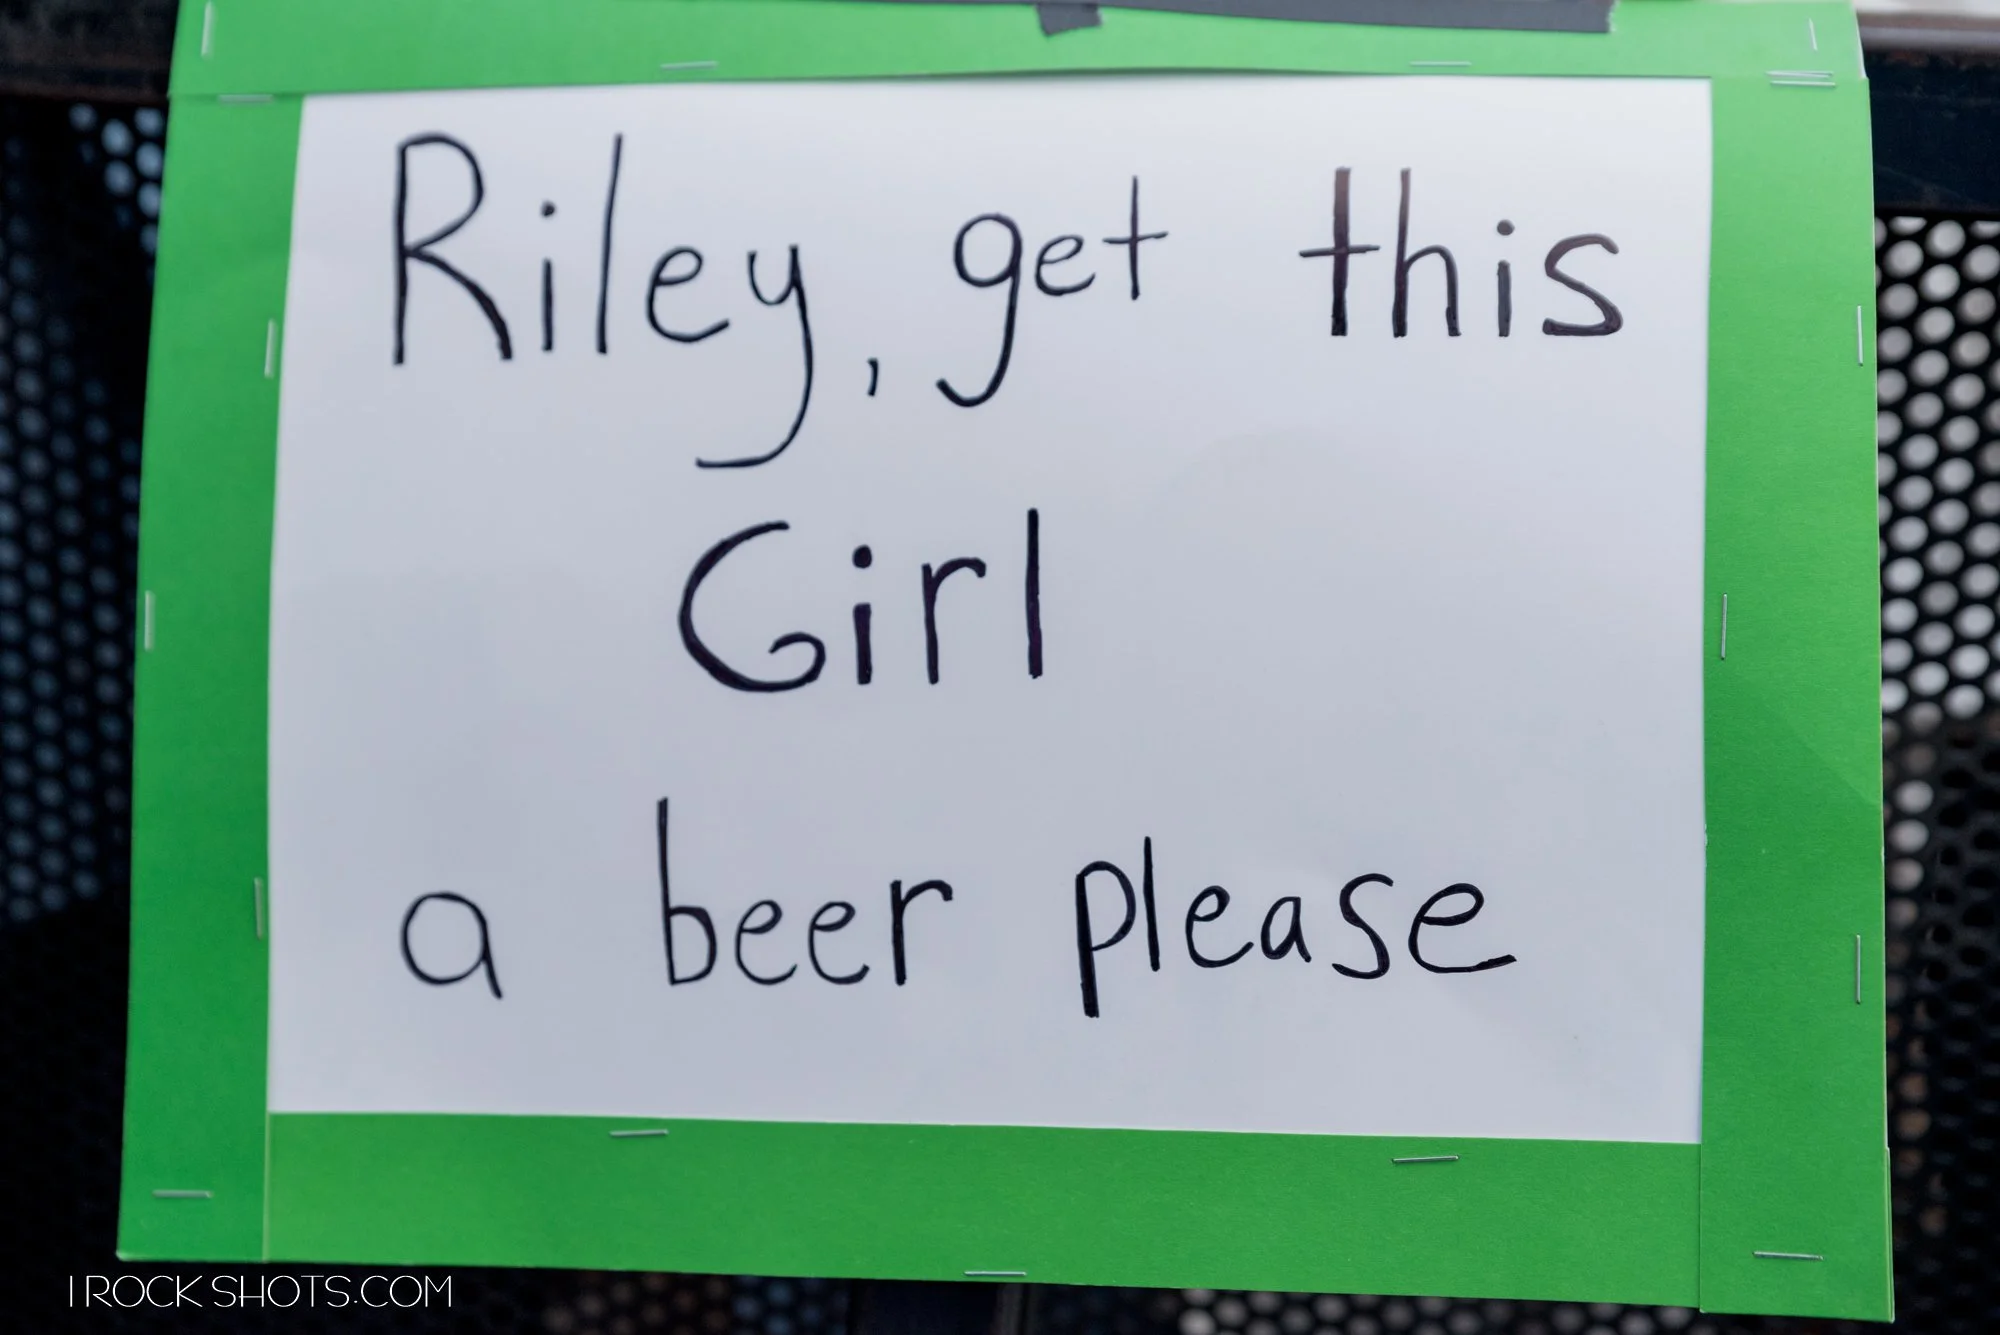 Riley, get this
Girl
a beer please
I ROCK SHOTS.COM